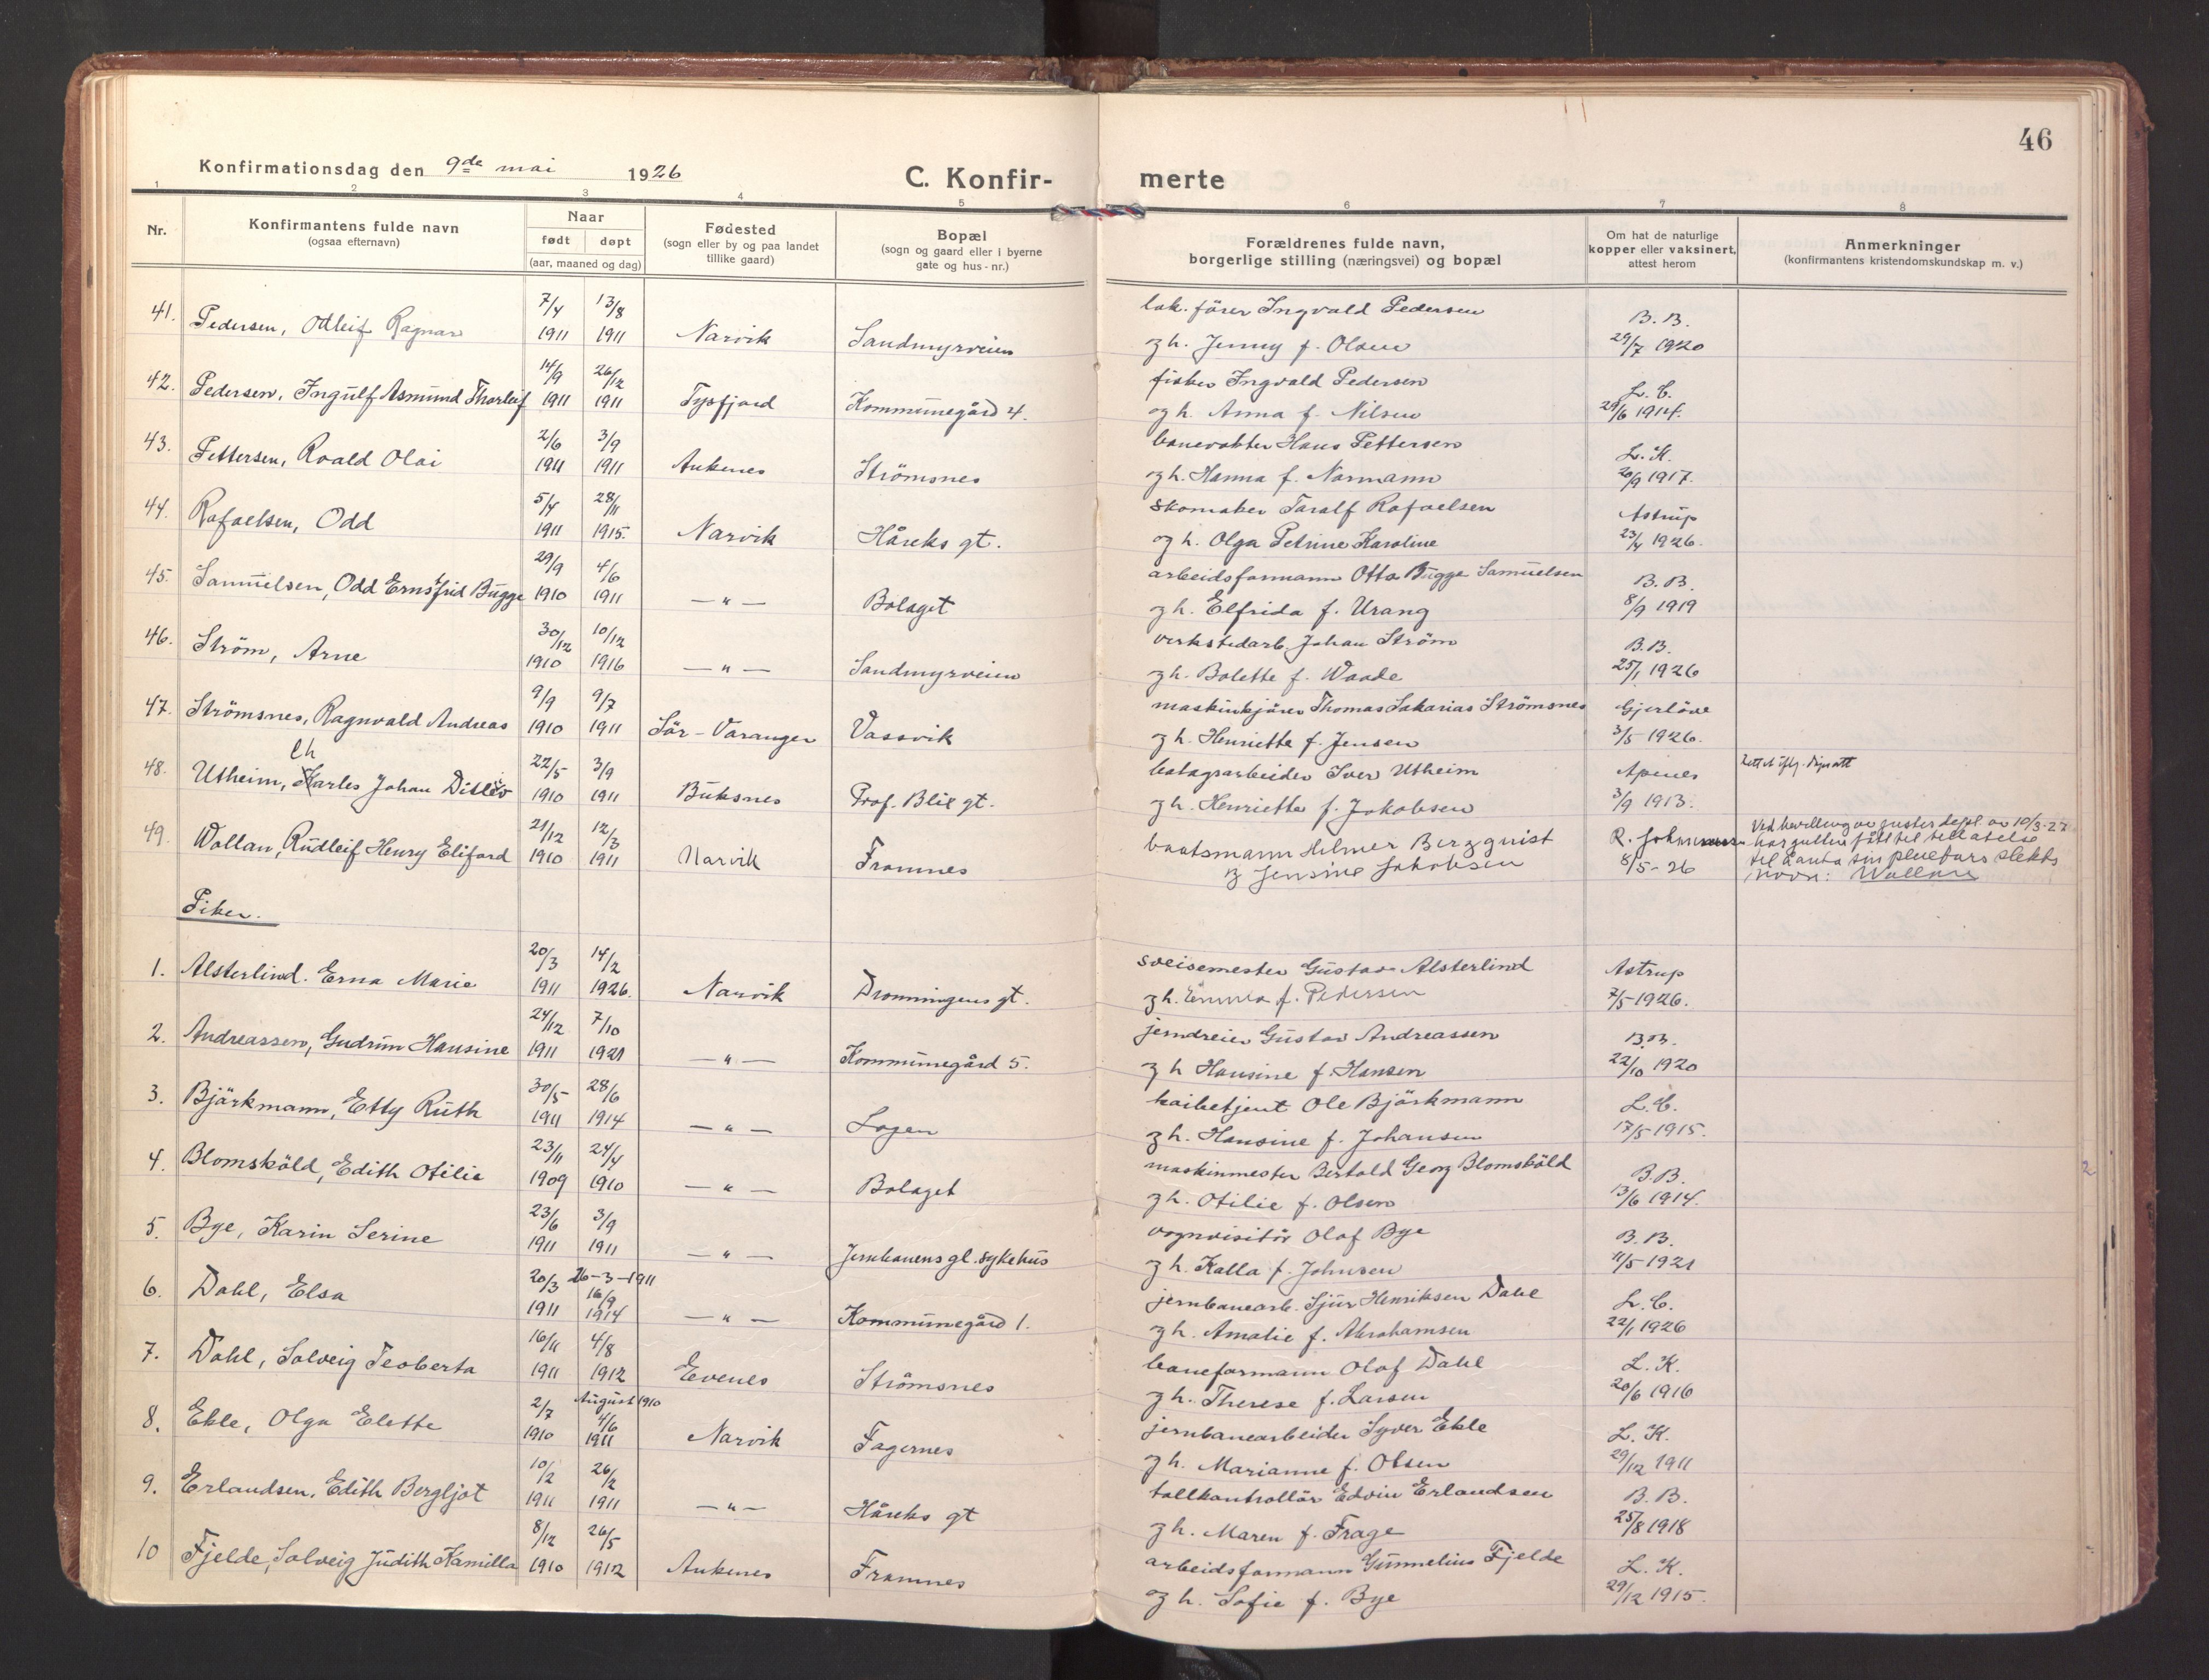 46
Konfirmationsdag den 9de mai 1926
C. Konfir-
merte
1 2 3 4 5 6 7 8
Nr.
Konfirmantens fulde navn
(ogsaa efternavn)
Naar
født døpt
(aar, maaned og dag)
Fødested
(sogn eller by og paa landet
tillike gaard)
Bopæl
(sogn og gaard eller i byerne
gate og hus-nr.)
Forældrenes fulde navn,
borgerlige stilling (næringsvei) og bopæl
Om hat de naturlige
kopper eller vaksinert,
attest herom
Anmerkninger
(konfirmantens kristendomskundskap m. v.)
41. 7/4 13/8 lok. förer Ingvald Pedersen B. B.
Pedersen, Odleif Ragnar 1911 1911 Narvik Sandmyrveien og h. Jenny f. Olsen 29/7 1920
42. 14/9 26/12 fisker Ingvald Pedersen L. C.
Pedersen, Ingulf Asmund Thorleif 1911 1911 Tysfjord Kommunegård 4. og h. Anna f. Nilsen 29/6 1914.
43. 2/6 3/9 banevokter Hans Pettersen L. K.
Pettersen, Roald Olai 1911 1911 Ankenes Strömsnes og h. Hanna f. Normann 20/9 1917.
44. 5/4 28/11 skomaker Taralf Rafaelsen Astrup
Rafaelsen, Odd 1911 1915. Narvik Håreks gt. og h. Olga Petrine Karoline 23/4 1926.
45. 29/9 4/6 arbeidsformann Otto Bugge Samuelsen B. B.
Samuelsen, Odd Ernstfrid Bugge 1910 1911 — " — Bolaget og h. Elfrida f. Urang 8/9 1919
46. 30/12 10/12 verkstedarb. Johan Ström B. B.
Ström, Arne 1910 1916 — " — Sandmyrveien og h. Bolette f. Waade 25/1 1926
47. 9/9 9/7 maskinkjörer Thomas Sakarias Strömsnes Gjerlöve
Strömsnes, Ragnvald Andreas 1910 1911 Sör-Varanger Vassvik og h. Henriette f. Jensen 3/5 1926.
Ch
48. 22/5 3/9 bolagsarbeider Iver Utheim Apenes
Utheim, Karles Johan Ditlev 1910 1911 Buksnes Prof. Blix gt. og h. Henriette f. Jakobsen 3/9 1913.
49. 21/12 12/3 baatsmann Hilmer Bergquist R. Johnsen Ved bevilling av Juster.dept. av 10/3-27
Wollan, Rudleif Henry Eliford 1910 1911 Narvik Framnes og Jensine Jakobsen 8/5-26 har gutten fått til tillatelse
til å anta sin pleiefars slekts
navn: Wollan
Piker.
1. 20/3 14/2 sveisemester Gustav Alsterlind Astrup
Alsterlind. Erna Marie 1911 1926. Narvik Dronningens gt. og h. Emma f. Pedersen 7/5-1926.
2. 24/12 7/10 jerndreier Gustav Andreassen B.B.
Andreassen, Gudrun Hansine 1911 1921 — " — Kommunegård 5. og h Hansine f. Hansen 22/10 1920
3. 30/5 28/6 kaibetjent Ole Björkmann L. C.
Björkmann, Etty Ruth 1911 1914 — " — Lagen og h. Hansine f. Johansen 17/5-1915.
4. 23/11 24/4 maskinmester Bertold Georg Blomsköld B.B.
Blomsköld, Edith Otilie 1909 1910 — " — Bolaget og h. Otilie f. Olsen 13/6 1914.
5. 23/6 3/9 vognvisitör Olaf Bye B. B.
Bye, Karin Serine 1911 1911 — " — Jernbanens gl. sykehus og h. Kalla f. Johnsen 11/5-1921
6. 20/3 26-3-1911 jernbanearb. Sjur Henriksen Dahl L. C.
Dahl, Elsa 1911 16/9 1914 — " — Kommunegård 1. og h. Amalie f. Abrahamsen 22/1 1926
7. 16/11 4/8 baneformann Olaf Dahl L. K.
Dahl, Solveig Teoberta 1911 1912 Evenes Strömsnes og h. Therese f. Larsen 20/6 1916
8. 2/7 August 1910 jernbanearbeider Syver Ekle L. K.
Ekle, Olga Elette 1910 4/6 1911 Narvik Fagernes og h. Marianne f. Olsen 29/12 1911
9. 10/2 26/2 tollkontrollör Edvin Erlandsen B. B.
Erlandsen, Edith Bergljot 1911 1911 — " — Håreks gt og h. Maren f. Frage 25/8 1918
10 8/12 26/5 arbeidsformann Gunnelius Fjelde L. K.
Fjelde, Solveig Judith Kamilla 1910 1912 Ankenes Framnes og h. Sofie f. Bye 29/12 1915.